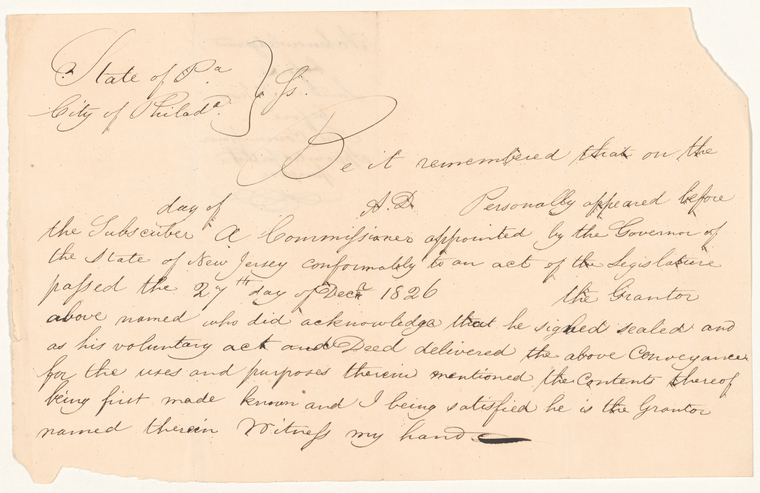 State of Pa } Ss.
City of Philada.
Be it remembered that on the
day of A.D. Personally appeared before
the Subscriber A Commissioner appointed by the Governor of
the State of New Jersey conformably to an act of the Legislature
passed the 27th day of Decr 1826 the Grantor
above named who did acknowledge that he signed sealed and
as his voluntary act and Deed delivered the above Conveyance
for the uses and purposes therein mentioned the Contents thereof
being first made known and I being satisfied he is the Grantor
named therein Witness my hand